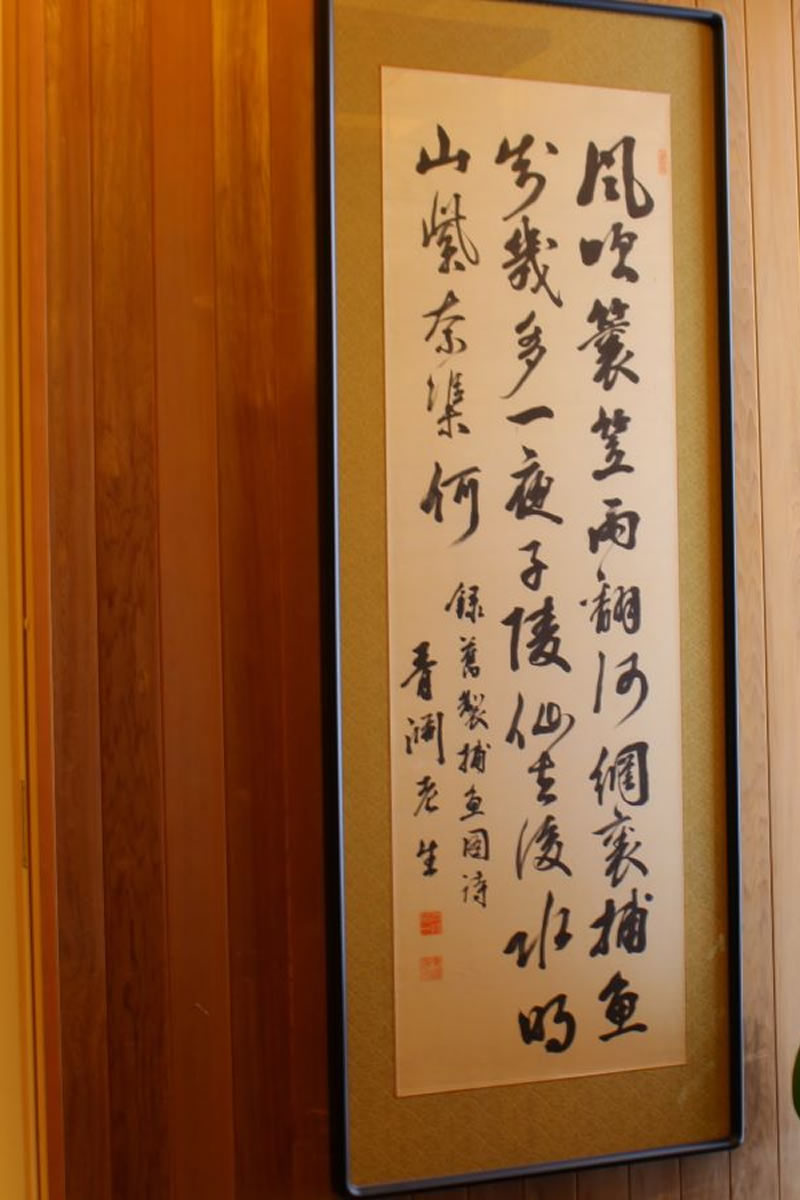 風吹蓑笠雨翻河網裏捕魚
知幾多一夜子陵仙去後水明
山紫奈渠何
録舊製捕魚図詩
青淵老生